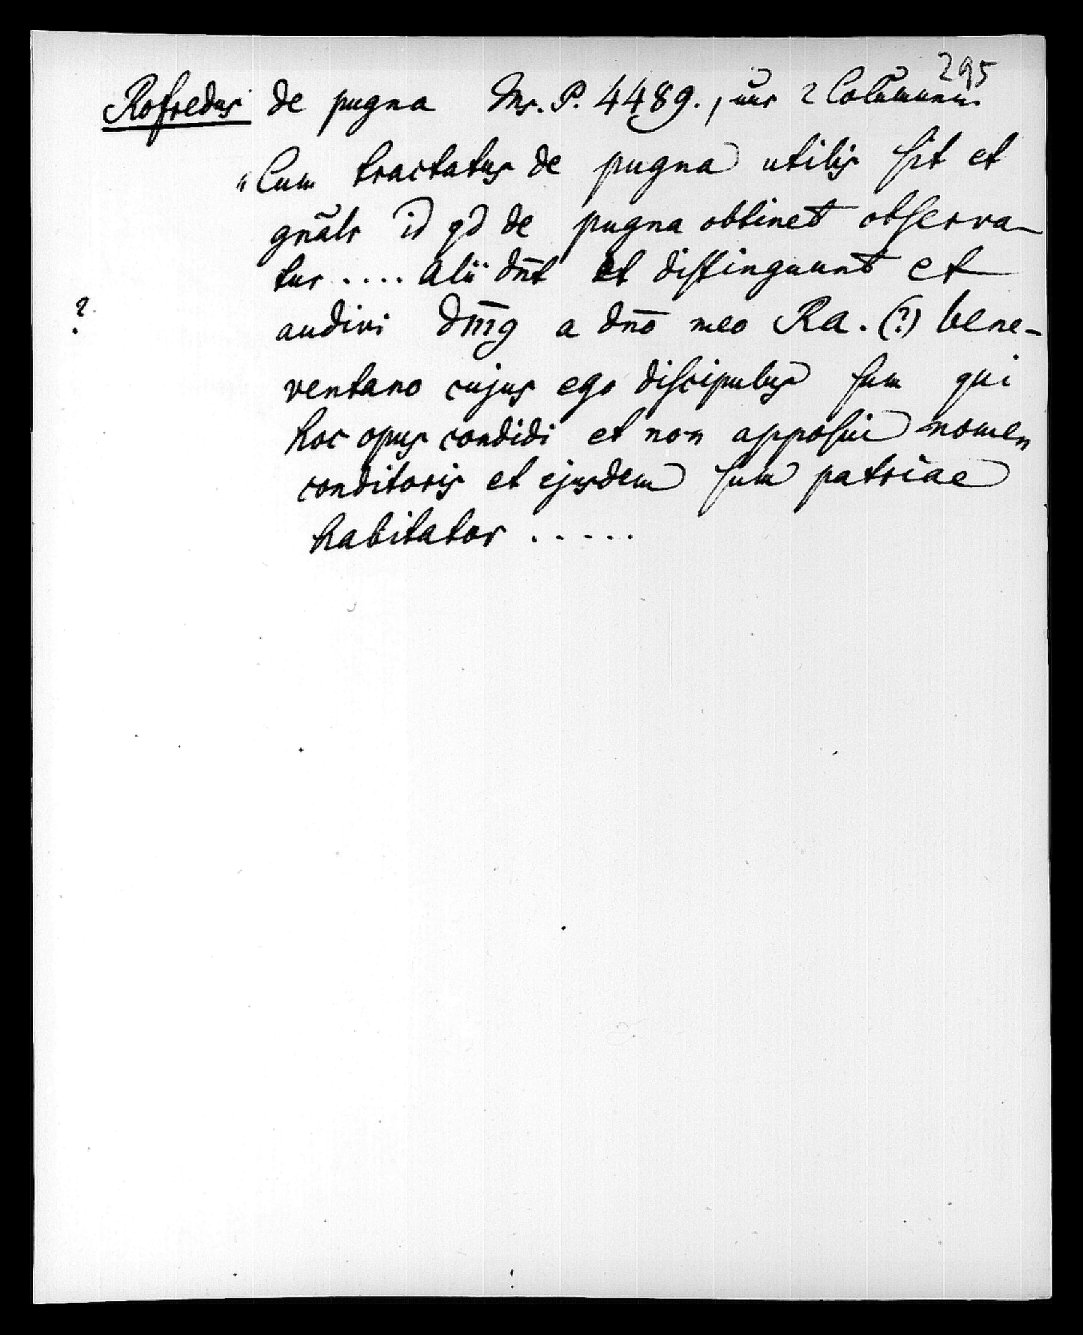 295
Rofredus de pugna Ms. P. 4489., nur 2 Columnen.
"Cum tractatus de pugna utilis sit et
gn̄alr id qd de pugna obtinet observa-
tur .... Alii dn̄t et distinguunt et
? audivi a dn̄o meo Ra. (?) bene-
ventano cujus ego discipulus sum qui
hoc opus condidi et non apposui nomen
conditoris et ejusdem sum patriae
habitator .....